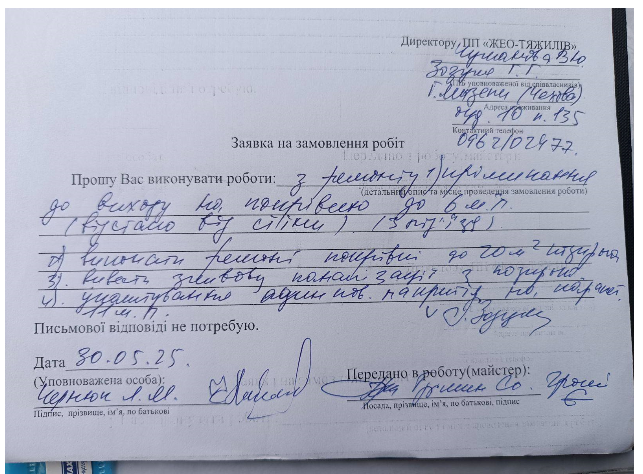 Директору ПП «ЖЕО-ТЯЖИЛІВ»
Зозуля Г. Г.
(ПІБ уповноваженої від співвласників)
Г. Мазепи (Чехова)
Адреса проживання
буд. 10 п. 135
Контактний телефон
0962102477.
Заявка на замовлення робіт
Прошу Вас виконувати роботи: з ремонту 1) примикання
(детальний опис та місце проведення замовлення роботи)
до виходу на покрівлю до 6 м.п.
(відстало від стіни). (3 під'їзд)
2) виконати ремонт покрівлі до 20 м²
3). зливову каналізації з
4). улаштування покриття на
11 м. п.
Письмової відповіді не потребую.
Дата 30.05.25.
(Уповноважена особа):
Передано в роботу(майстер):
Л. М.
Підпис, прізвище, ім'я, по батькові
Посада, прізвище, ім'я, по батькові, підпис